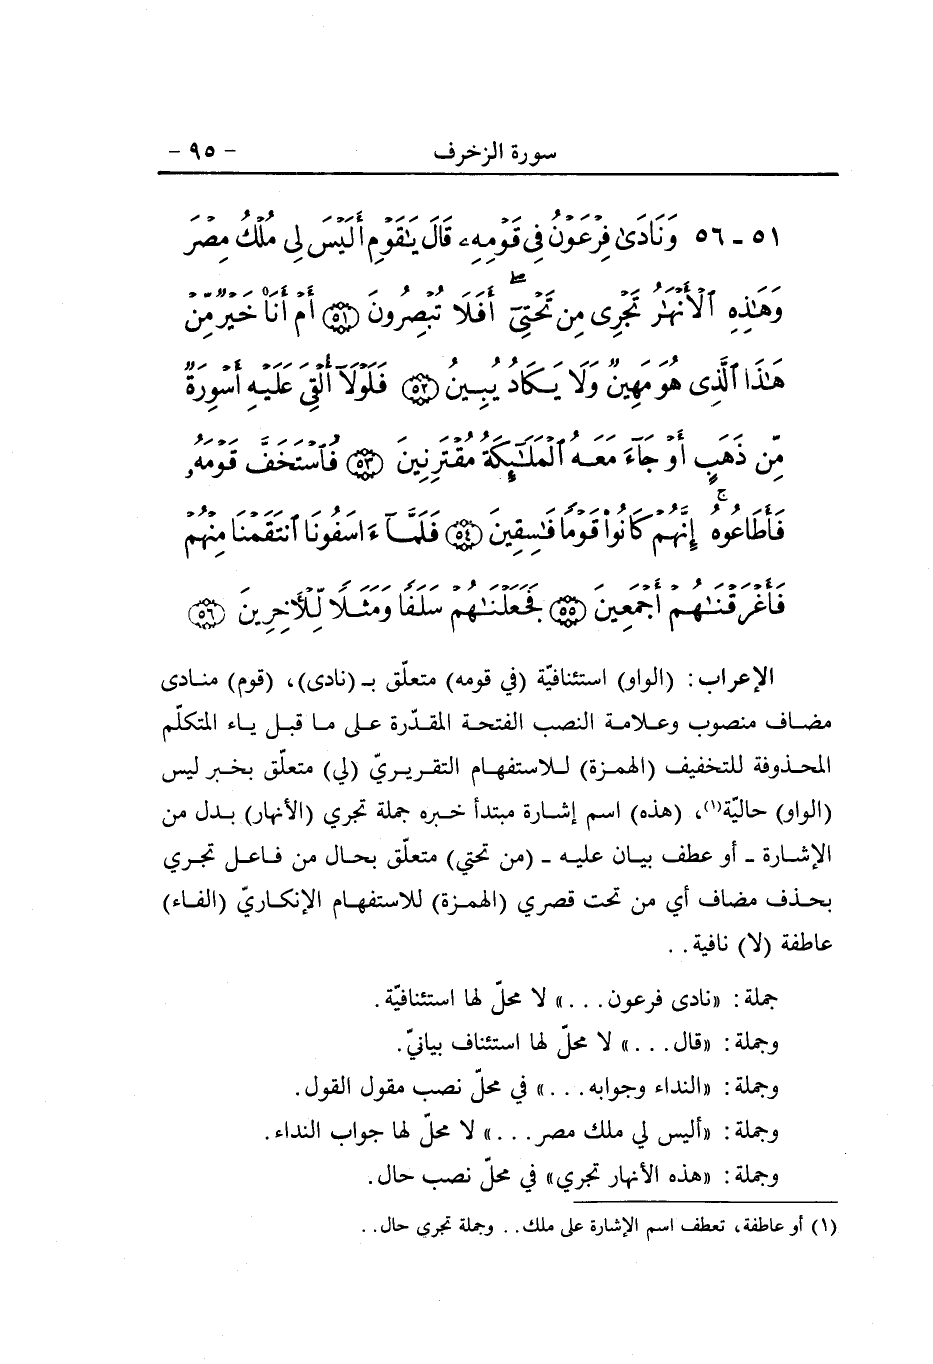 سورة الزخرف - ٩٥ -
٥١ - ٥٦ وَنَادَىٰ فِرْعَوْنُ فِى قَوْمِهِۦ قَالَ يَٰقَوْمِ أَلَيْسَ لِى مُلْكُ مِصْرَ
وَهَٰذِهِ ٱلْأَنْهَٰرُ تَجْرِى مِن تَحْتِىٓ ۖ أَفَلَا تُبْصِرُونَ ﴿٥١﴾ أَمْ أَنَا۠ خَيْرٌ مِّنْ
هَٰذَا ٱلَّذِى هُوَ مَهِينٌ وَلَا يَكَادُ يُبِينُ ﴿٥٢﴾ فَلَوْلَآ أُلْقِىَ عَلَيْهِ أَسْوِرَةٌ
مِّن ذَهَبٍ أَوْ جَآءَ مَعَهُ ٱلْمَلَٰٓئِكَةُ مُقْتَرِنِينَ ﴿٥٣﴾ فَٱسْتَخَفَّ قَوْمَهُۥ
فَأَطَاعُوهُ ۚ إِنَّهُمْ كَانُوا۟ قَوْمًا فَٰسِقِينَ ﴿٥٤﴾ فَلَمَّآ ءَاسَفُونَا ٱنتَقَمْنَا مِنْهُمْ
فَأَغْرَقْنَٰهُمْ أَجْمَعِينَ ﴿٥٥﴾ فَجَعَلْنَٰهُمْ سَلَفًا وَمَثَلًا لِّلْءَاخِرِينَ ﴿٥٦﴾
الإعراب: (الواو) استئنافيّة (في قومه) متعلّق بـ (نادى)، (قوم) منادى
مضاف منصوب وعلامة النصب الفتحة المقدّرة على ما قبل ياء المتكلّم
المحذوفة للتخفيف (الهمزة) للاستفهام التقريريّ (لي) متعلّق بخبر ليس
(الواو) حاليّة(١)، (هذه) اسم إشارة مبتدأ خبره جملة تجري (الأنهار) بدل من
الإشارة ـ أو عطف بيان عليه ـ (من تحتي) متعلّق بحال من فاعل تجري
بحذف مضاف أي من تحت قصري (الهمزة) للاستفهام الإنكاريّ (الفاء)
عاطفة (لا) نافية . .
جملة: «نادى فرعون . . .» لا محلّ لها استئنافيّة.
وجملة: «قال . . .» لا محلّ لها استئناف بيانيّ.
وجملة: «النداء وجوابه . . .» في محلّ نصب مقول القول.
وجملة: «أليس لي ملك مصر . . .» لا محلّ لها جواب النداء.
وجملة: «هذه الأنهار تجري» في محلّ نصب حال.
(١) أو عاطفة، تعطف اسم الإشارة على ملك . . وجملة تجري حال . .